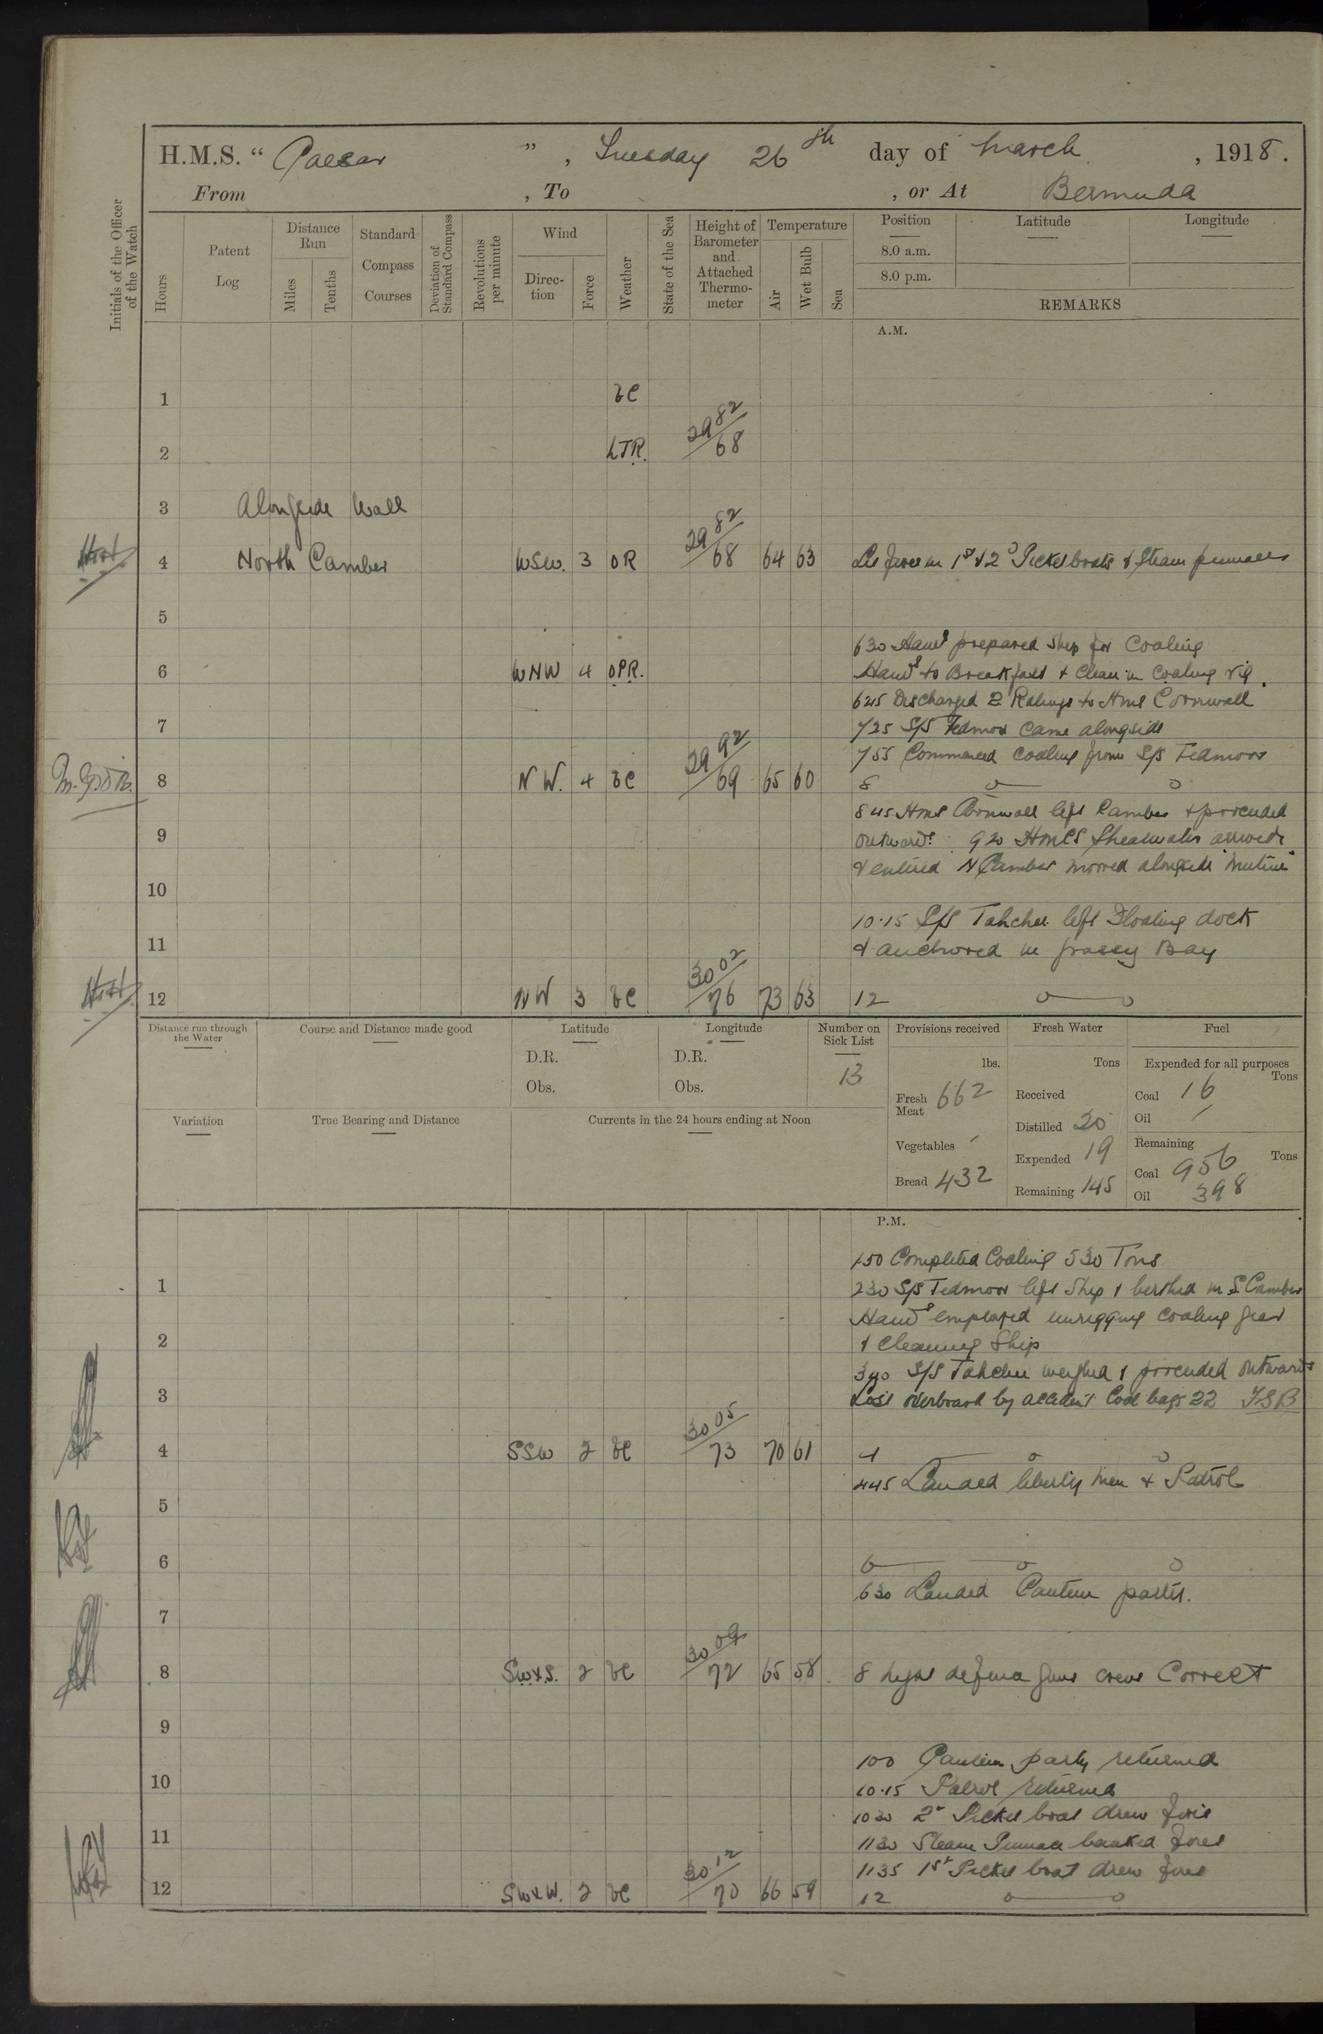 H.M.S. " Caesar " , Tuesday 26th day of March , 1918.
From , To , or At Bermuda
Initials of the Officer of the Watch
Hours
Patent Log
Distance Run
Miles
Tenths
Standard Compass Courses
Deviation of Standard Compass
Revolutions per minute
Wind
Direction
Force
Weather
State of the Sea
Height of Barometer and Attached Thermometer
Temperature
Air
Wet Bulb
Sea
Position Latitude Longitude
8.0 a.m.
8.0 p.m.
REMARKS
A.M.
1 bc
2 LTR. 29 82/68
3 Alongside Wall
4 North Camber WSW. 3 OR 29 82/68 64 63 Lit fires in 1st & 2d Picket boats & Steam pinnaces
5
630 Hands prepared Ship for Coaling
6 WNW 4 OPR. Hands to Breakfast & Clean in Coaling rig.
645 Discharged 2 Ratings to HMS Cornwall
7 725 S/S Tedmoor Came alongside
755 Commenced coaling from S/S Tedmoor
8 NW. 4 bc 29 92/69 65 60 8
845 HMS Cornwall left Camber & proceeded
9 outwards. 920 HMCS Shearwater arrived
& entered N Camber moored alongside Mutine
10
10.15 S/S Tahchee left Floating dock
11 & anchored in Grassy Bay
12 NW 3 bc 30 02/76 73 63 12
Distance run through the Water
Course and Distance made good
Latitude
D.R.
Obs.
Longitude
D.R.
Obs.
Number on Sick List
13
Provisions received
lbs.
Fresh Meat 662
Vegetables /
Bread 432
Fresh Water
Tons
Received
Distilled 20
Expended 19
Remaining 145
Fuel
Expended for all purposes
Tons
Coal 16
Oil /
Remaining
Tons
Coal 956
Oil 398
Variation
True Bearing and Distance
Currents in the 24 hours ending at Noon
P.M.
150 Completed Coaling 530 Tons
1 230 S/S Tedmoor left Ship & berthed in S Camber
Hands employed unrigging coaling gear
2 & cleaning Ship
340 S/S Tahchee weighed & proceeded outwards
3 Lost overboard by accident Coal bags 22
4 SSW 2 bc 30 05/73 70 61 4
445 Landed liberty men & Patrol
5
6 6
630 Landed Canteen party.
7
8 SWxS. 2 bc 30 09/72 65 58 8 Night defence guns crews Correct
9
100 Canteen party returned
10 10.15 Patrol returned
1030 2d Picket boat drew fires
11 1130 Steam Pinnace banked fires
1135 1st Picket boat drew fires
12 SWxW. 2 bc 30 12/70 66 59 12